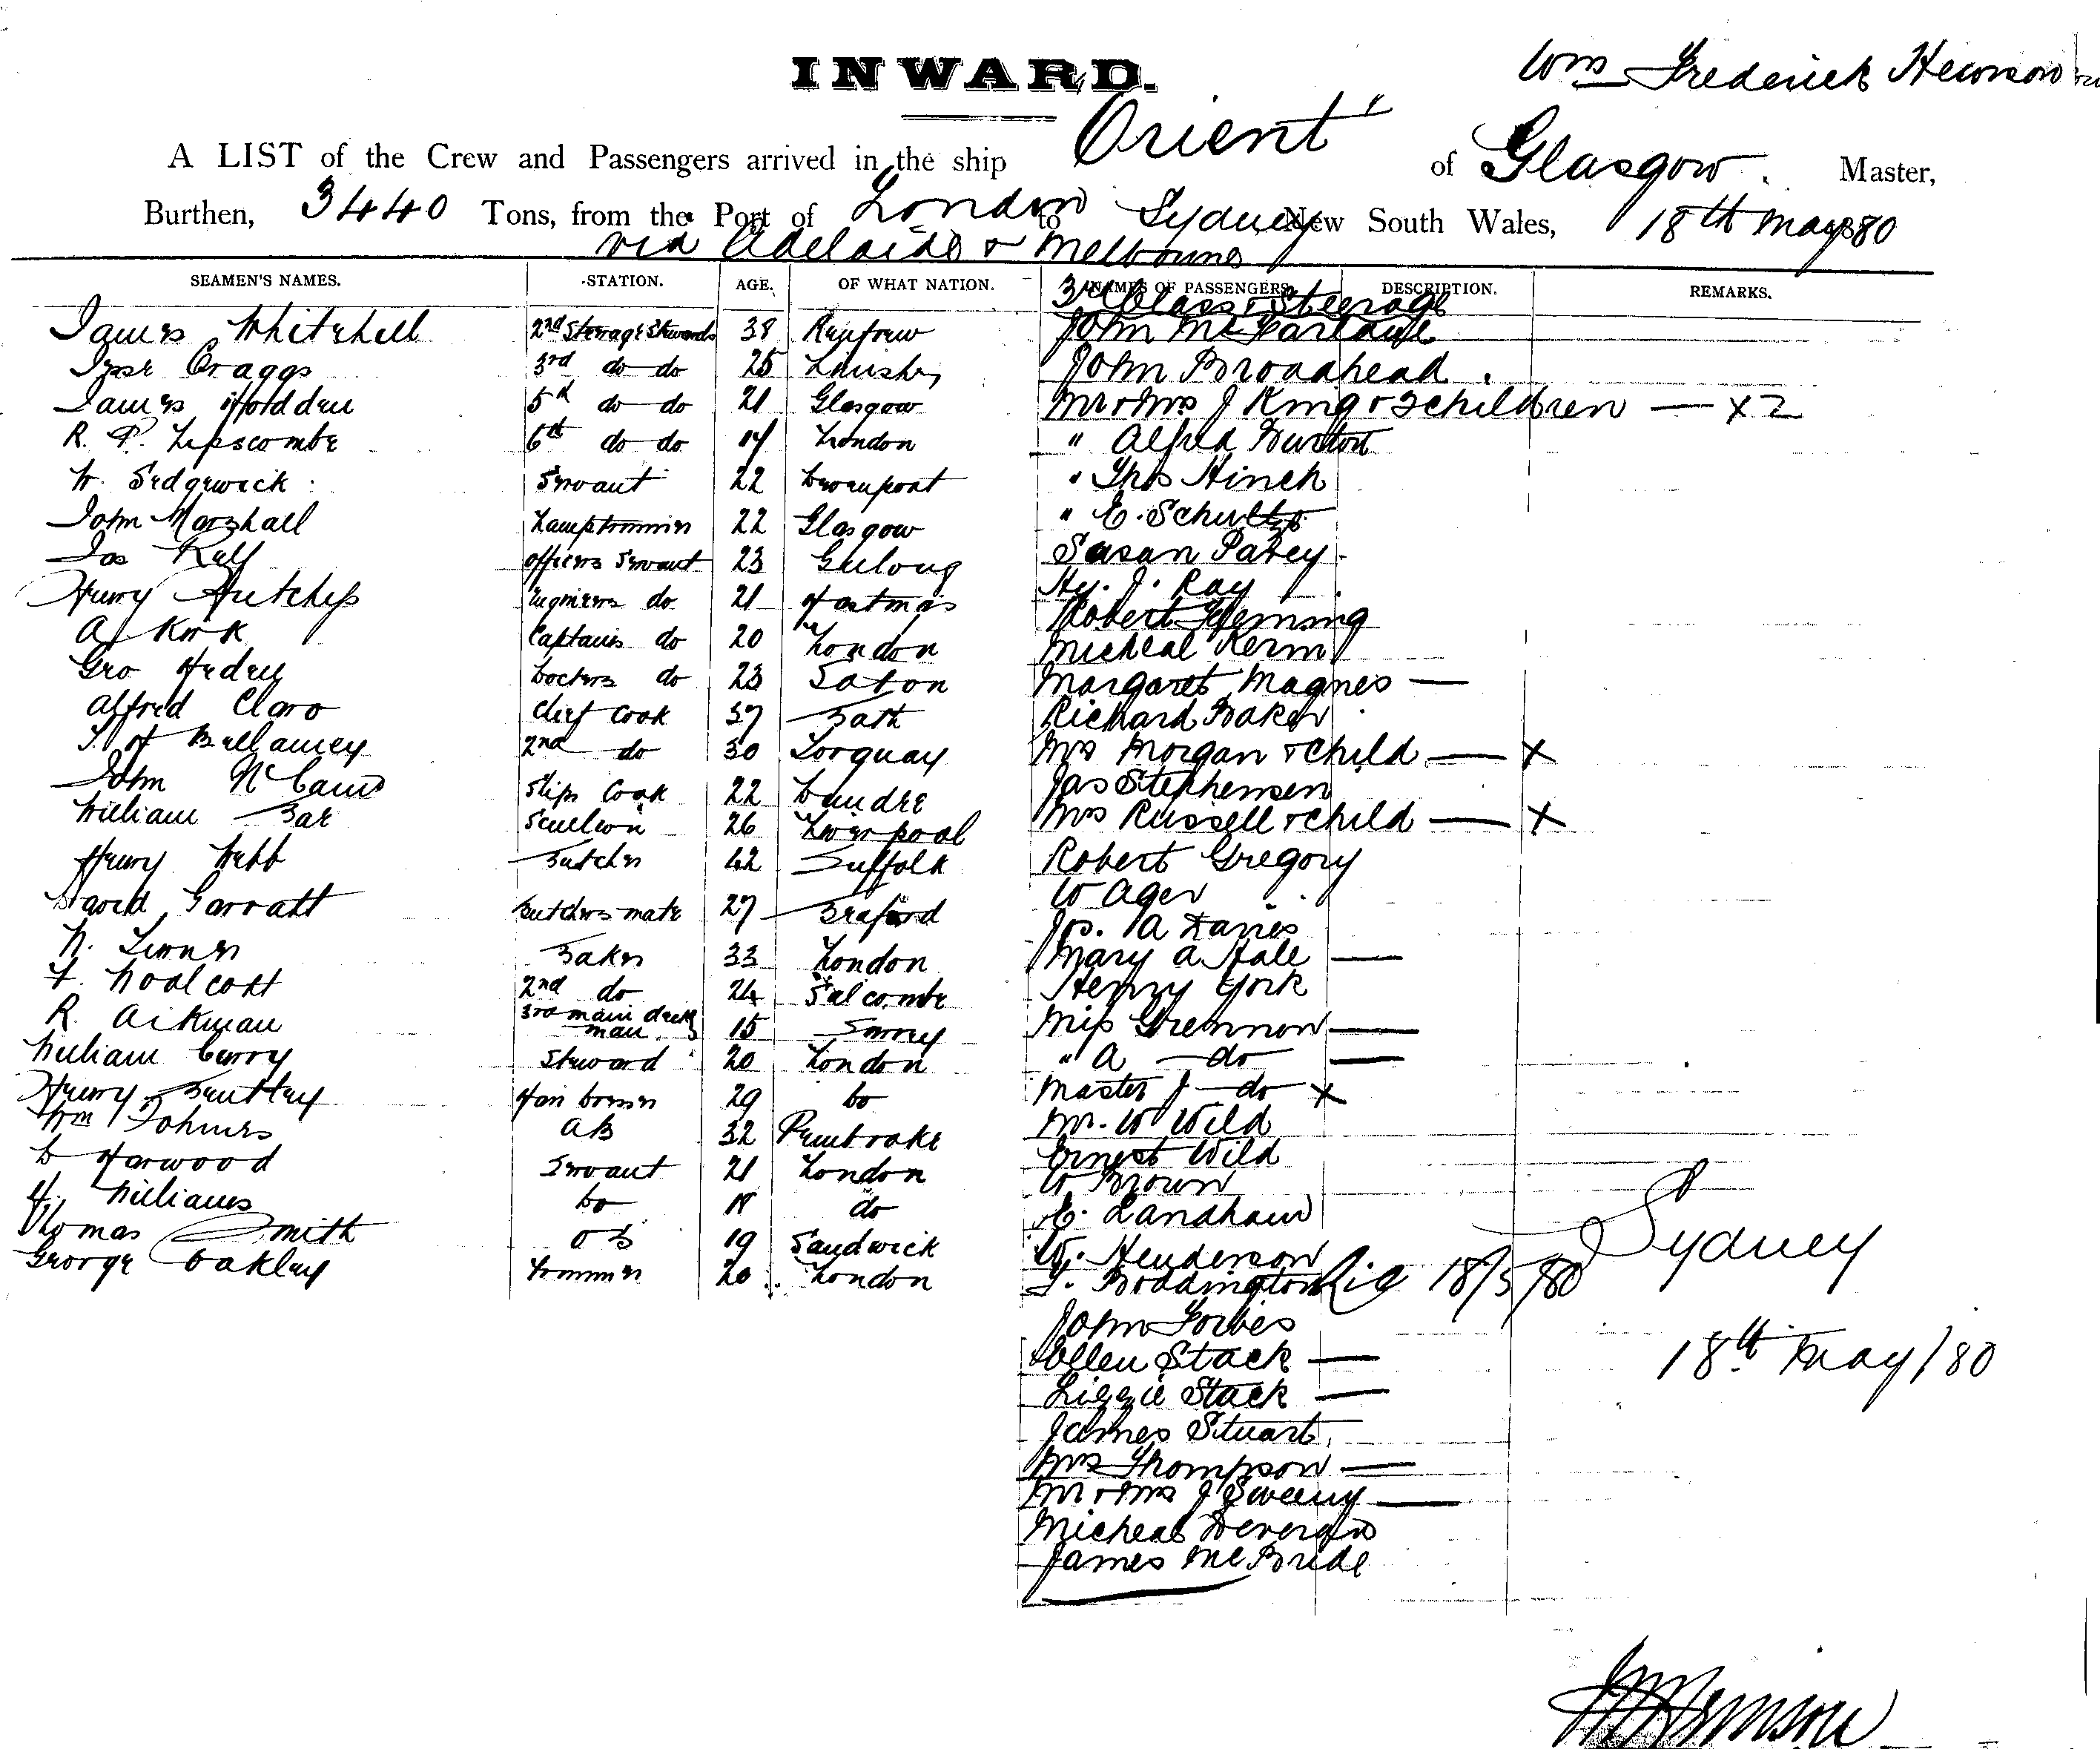 INWARD.
Wm Frederick Hewson
A LIST of the Crew and Passengers arrived in the ship Orient of Glasgow. Master,
Burthen, 3440 Tons, from the Port of London to Sydney New South Wales, 18th May 1880
via Adelaide & Melbourne
SEAMEN'S NAMES. STATION. AGE. OF WHAT NATION. NAMES OF PASSENGERS. DESCRIPTION. REMARKS.
3rd Class & Steerage
James Whitehill 2nd Steerage Stewards 38 Renfrew John McFarlane
Craggs 3rd do do 25 John Broadhead
James Holden 5th do do 21 Glasgow Mr & Mrs J King & 2 children — x 2
R. P. Lipscombe 6th do do 19 London " Alfred Burton
W. Sedgewick Servant 22 Devenport " Thos Hinch
John Marshall Lamptrimmer 22 Glasgow " E. Schultze
Jas Kelf officers Servant 23 Geelong Susan Pavey
Henry Hutchips Engineers do 21 Hy. J. Ray
Robert Fleming
A Kirk Captains do 20 London Micheal Kerm
Geo Doctors do 23 Margaret Magnes —
Alfred Claro Chief Cook 37 Bath Richard Baker
Bellamey 2nd do 30 Torquay Mrs Morgan & child — x
John McCann Ships Cook 22 Dundee Jas Stephensen
William Bae Scullion 26 Liverpool Mrs Russell & child — x
Henry Webb Butcher 42 Suffolk Robert Gregory
W Ager
David Garratt Butchers mate 27 Jos. A Davies
Baker 33 London Mary A Hale —
F. Woolcott 2nd do 24 Salcombe Henry York
R. Aikman 3rd main deck man 15 Surrey Miss Grennon —
William Curry Steward 20 London " A — do —
Henry Bentley Hair Dresser 29 Do Master J — do x
Wm AB 32 Pembroke Mr. W Wild
Ernest Wild
D Harwood Servant 21 London W Brown
H. Williams Do 18 do E. Landham
Thomas Smith OS 19 Sandwick W. Henderson
George Oakley Trimmer 20 London T. Boddington 18/5/80 Sydney
John Forbes
Ellen Stack — 18th May/80
Lizzie Stack —
James Stuart
Mrs Thompson —
Mr & Mrs J Sweeny —
Micheal
James McBride